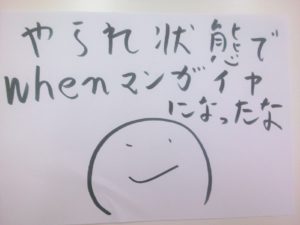 やられ状態で
whenマンガイヤ
になったな